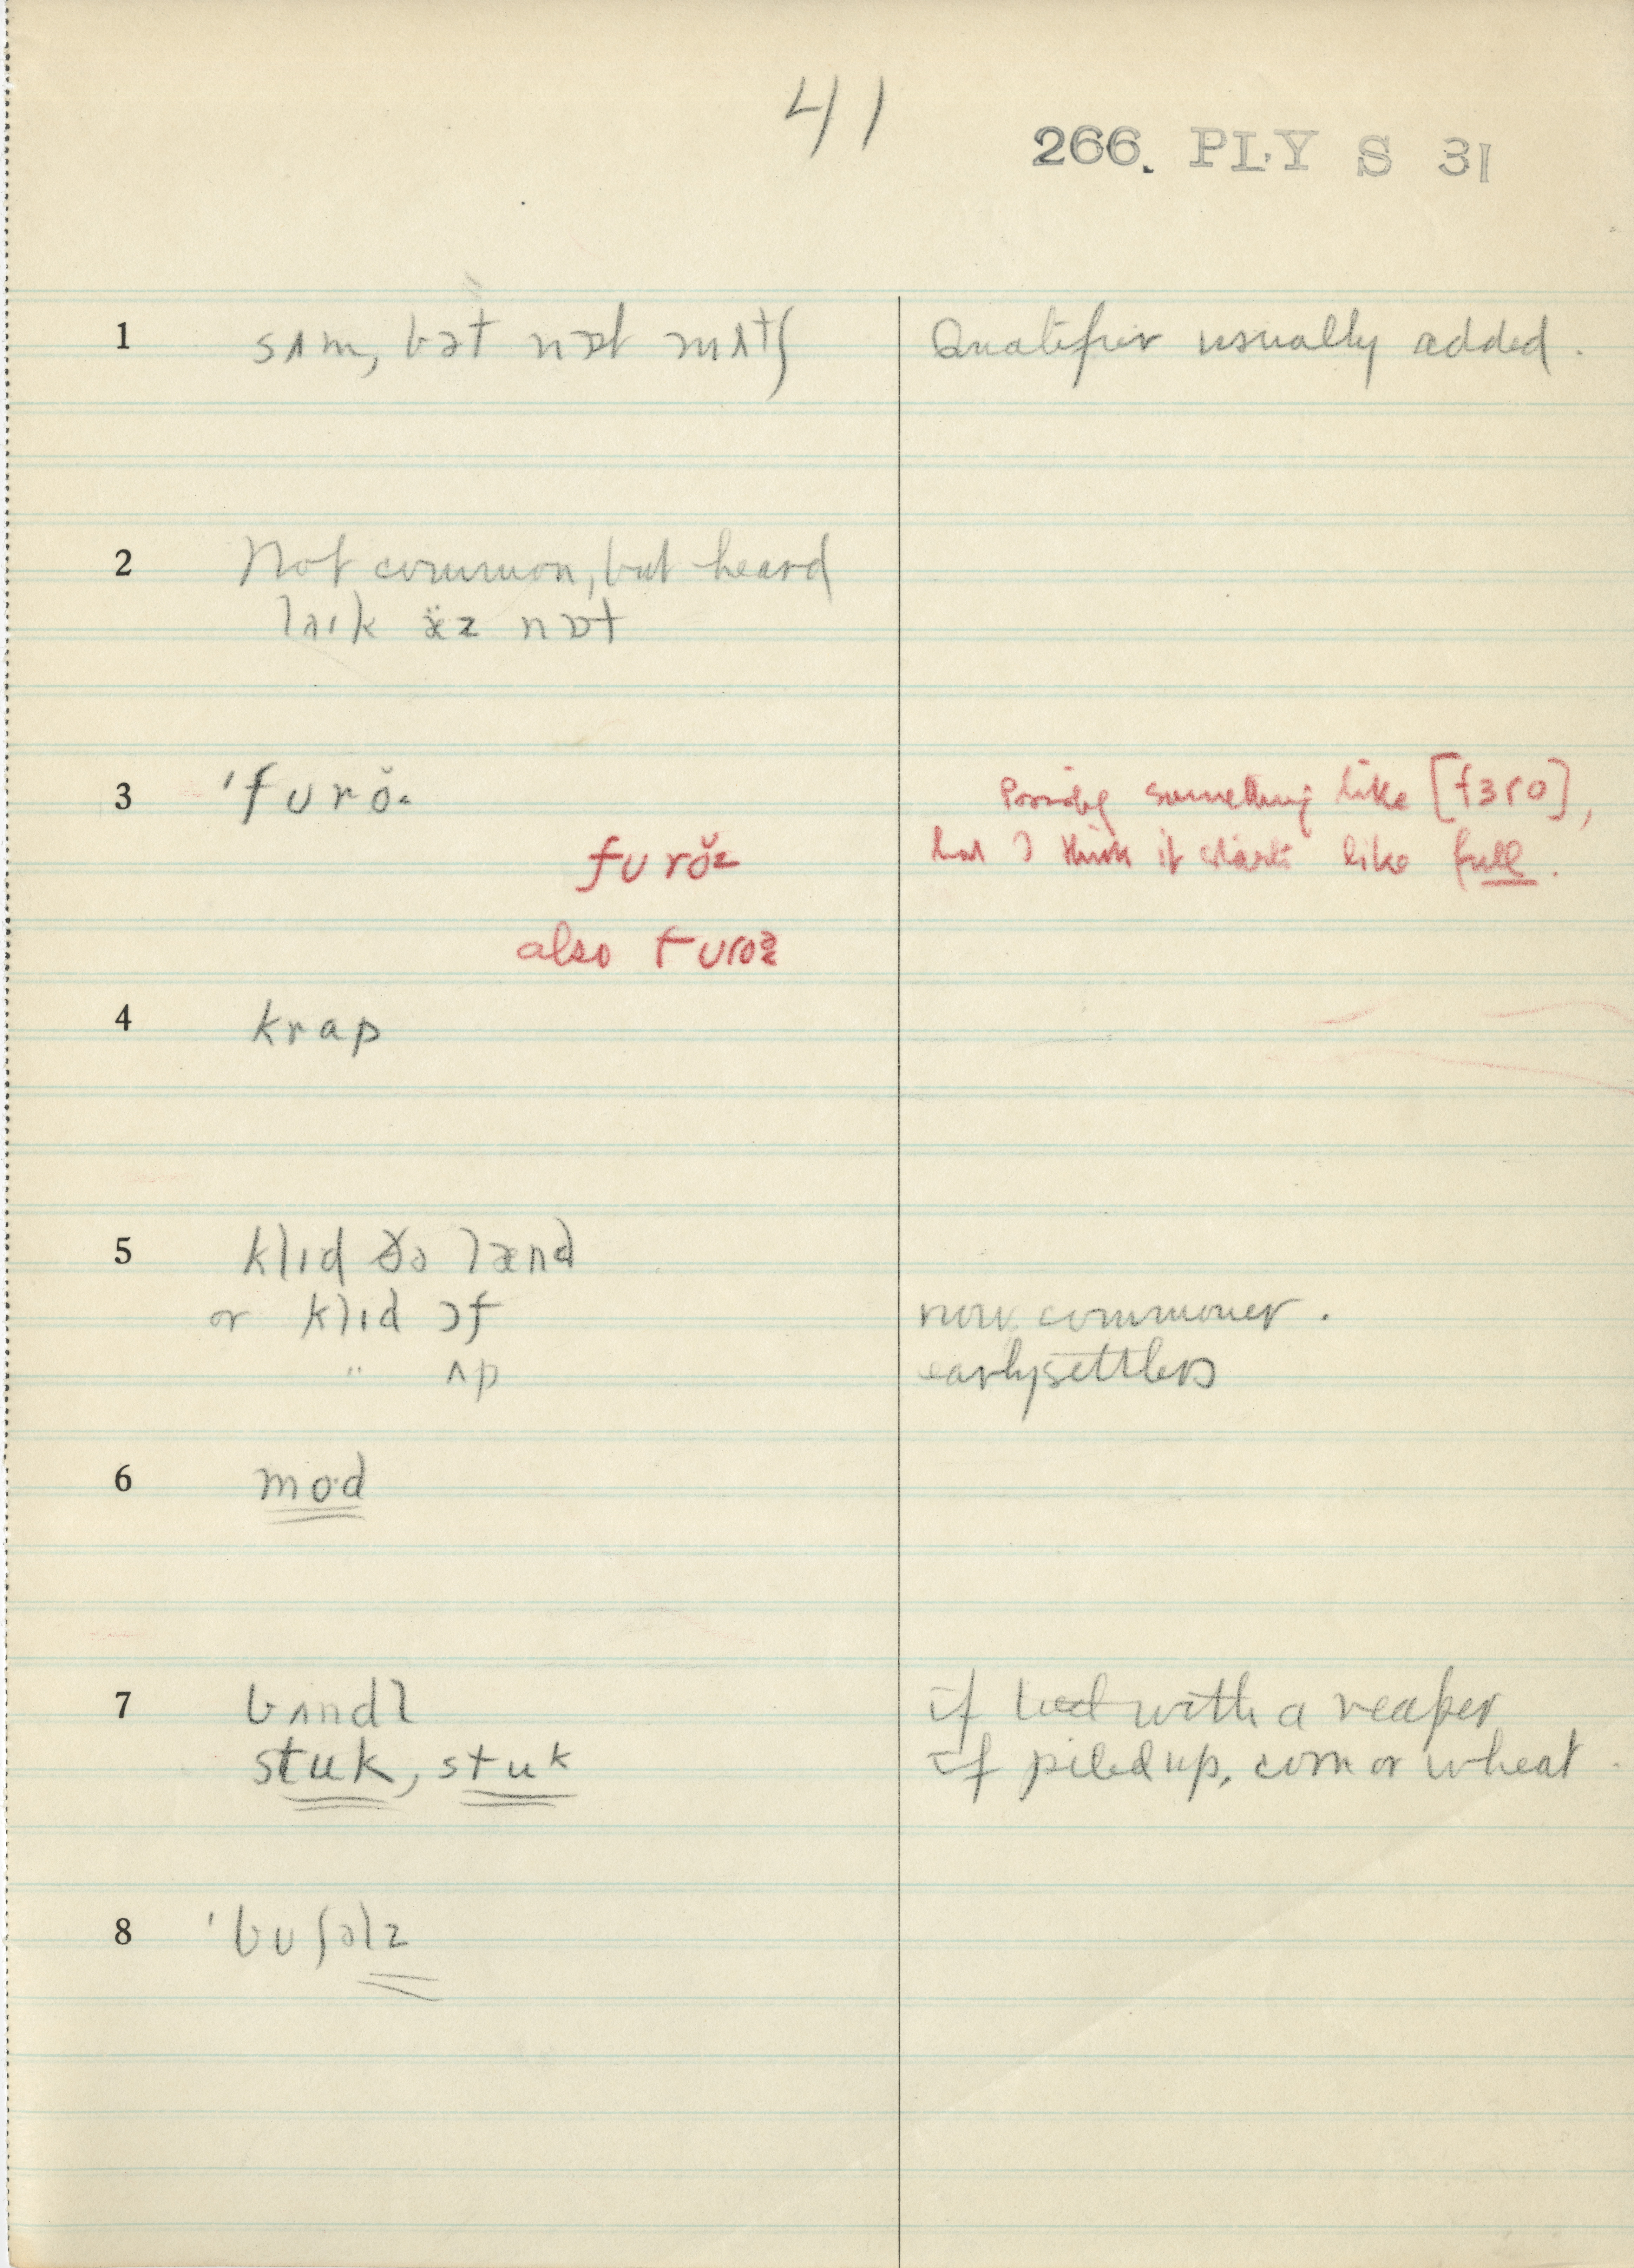 41
266. PLY S 31
1 sʌm, bət nɒt mʌtʃ Qualifier usually added.
2 Not common, but heard
laɪk æ̈z nɒt
3 'fʊrŏ. Possibly something like [fɜro],
fʊrŏz but I think it starts like full.
also fʊroz
4 krap
5 klɪd ðə lænd
or klɪd ɔf now commoner.
" ʌp early settlers
6 mo·d
7 bʌndl if tied with a reaper
stuk, stuk if piled up, corn or wheat.
8 'bʊʃəlz